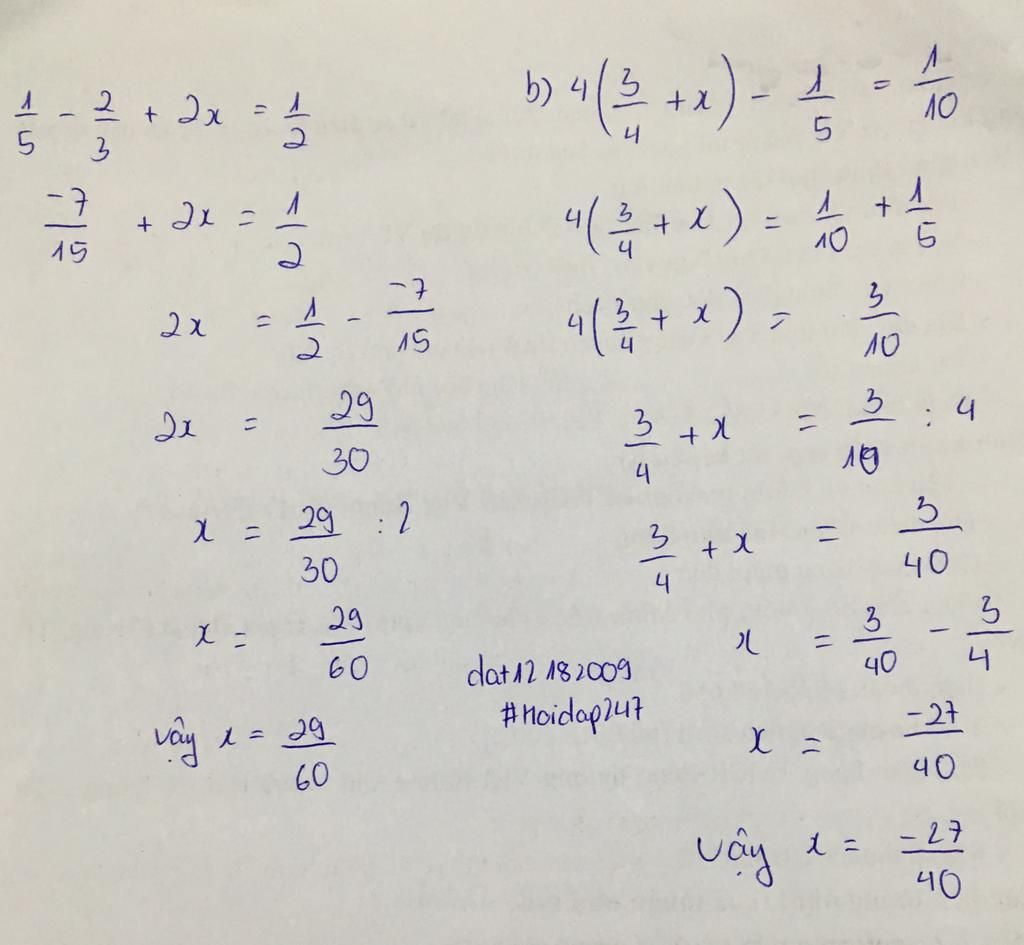 1/5 - 2/3 + 2x = 1/2
-7/15 + 2x = 1/2
2x = 1/2 - -7/15
2x = 29/30
x = 29/30 : 2
x = 29/60
Vậy x = 29/60
b) 4(3/4 + x) - 1/5 = 1/10
4(3/4 + x) = 1/10 + 1/5
4(3/4 + x) = 3/10
3/4 + x = 3/10 : 4
3/4 + x = 3/40
x = 3/40 - 3/4
x = -27/40
Vậy x = -27/40
dat12182009
#Hoidap247